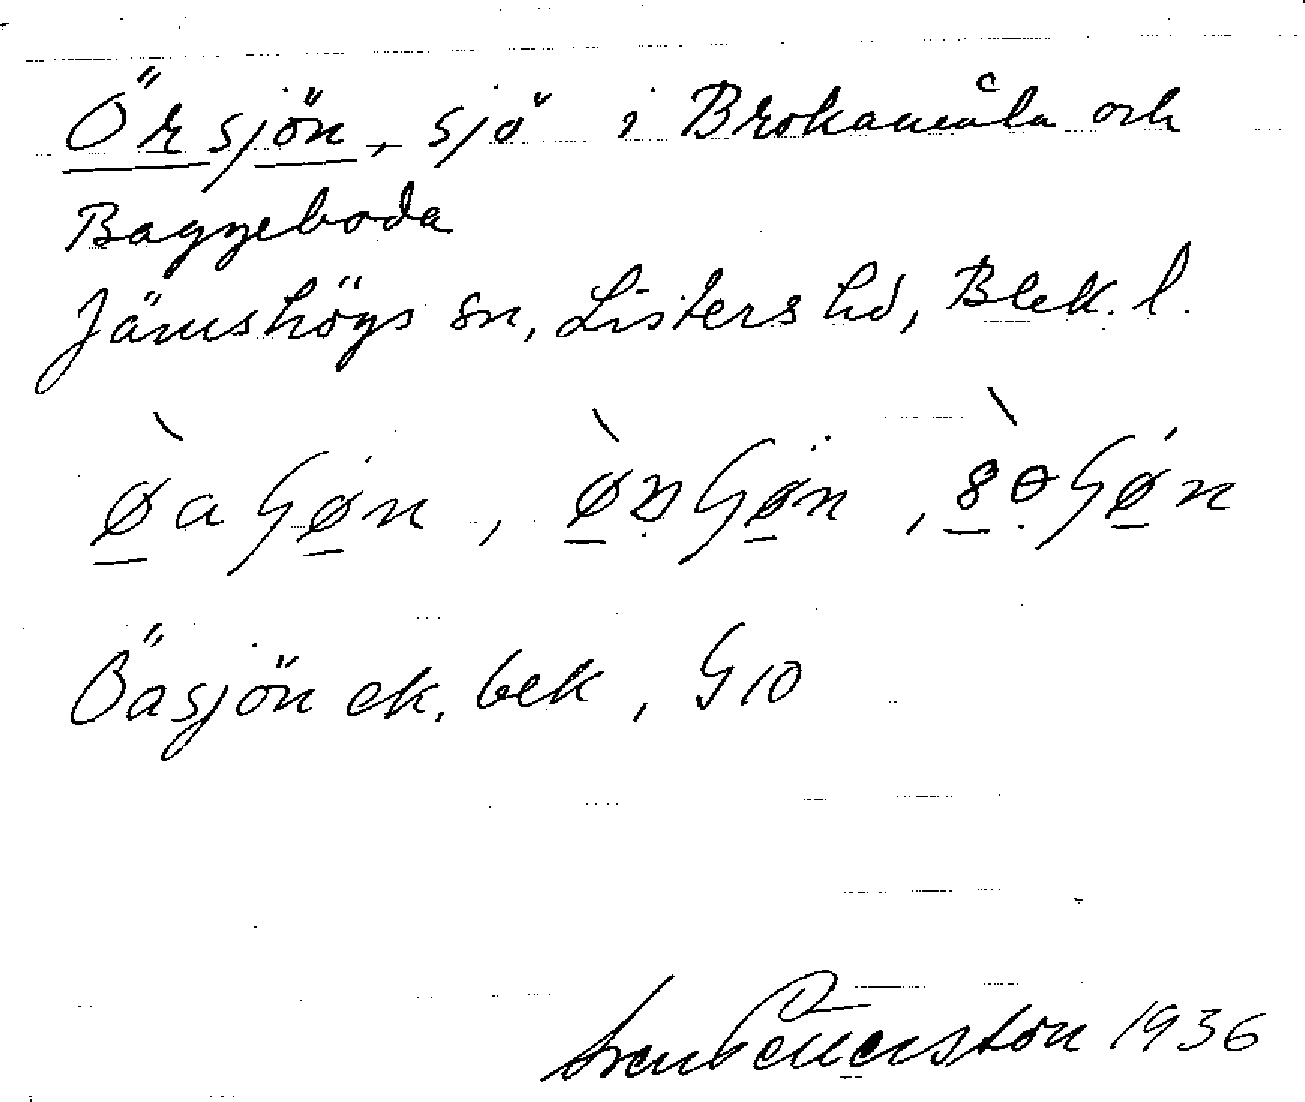 Örsjön, sjö i Brokamåla och
Baggeboda
Jämshögs sn, Listers hd, Blek. l.
Öasjön ek. bek, G10
1936